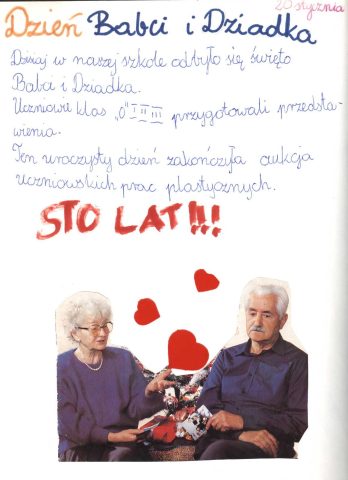 20 stycznia
Dzień Babci i Dziadka
Dzisiaj w naszej szkole odbyło się święto
Babci i Dziadka.
Uczniowie klas „0” I II III przygotowali przedsta-
wienia.
Ten uroczysty dzień zakończyła aukcja
uczniowskich prac plastycznych.
STO LAT!!!